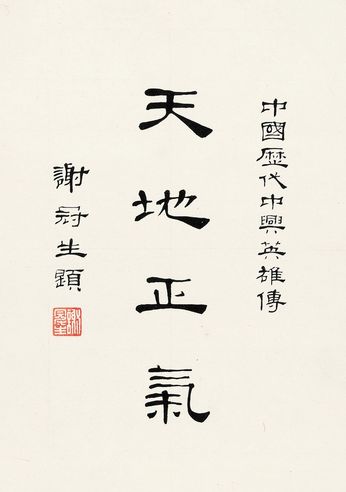 中國歷代中興英雄傳
天地正氣
謝冠生題